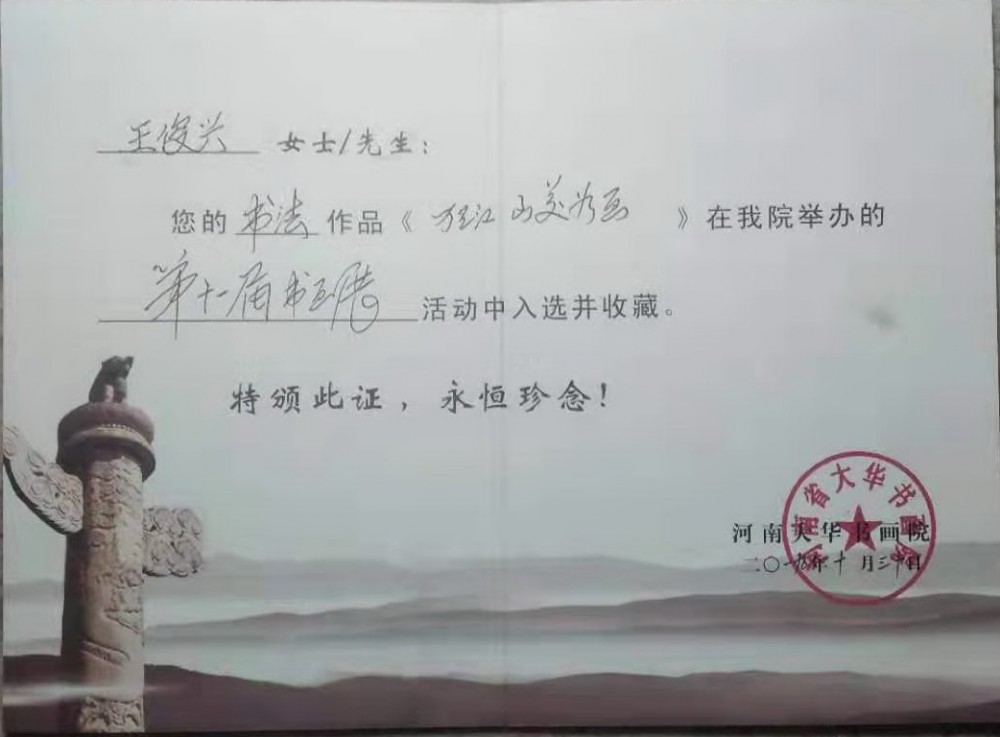 王俊兴 女士/先生:
您的 书法 作品《 江山美如画 》在我院举办的
第十一届书画展 活动中入选并收藏。
特颁此证,永恒珍念!
河南省大华书画院
河南大华书画院
二〇一九年十月三十日